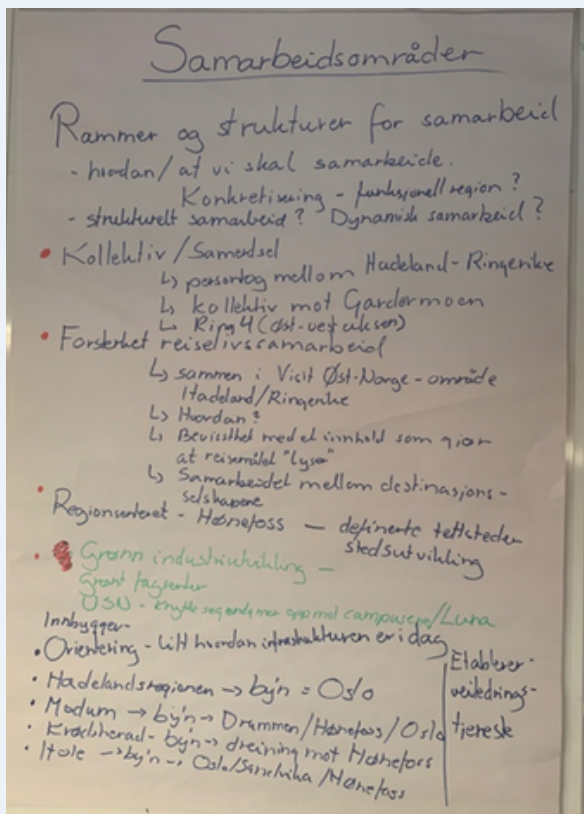 Samarbeidsområder
Rammer og strukturer for samarbeid
- hvordan/at vi skal samarbeide.
Konkretisering - funksjonell region?
- strukturelt samarbeid? Dynamisk samarbeid?
• Kollektiv/Samferdsel
↳ persontog mellom Hadeland-Ringerike
↳ kollektiv mot Gardermoen
↳ Ring 4 (øst-vest aksen)
• Forsterket reiselivssamarbeid
↳ sammen i Visit Øst-Norge-område
Hadeland/Ringerike
↳ Hvordan?
↳ Bevissthet med et innhold som gjør
at reisemålet "lyser"
↳ Samarbeidet mellom destinasjons-
selskapene
• Regionsenteret - Hønefoss — definerte tettsteder
stedsutvikling
• Grønn industriutvikling -
Grønt fagsenter
USN - knytte seg opp mot campusene/Luna
Innbygger-
• Orientering - litt hvordan infrastrukturen er i dag
• Hadelandsregionen → by'n = Oslo
• Modum → by'n → Drammen/Hønefoss/Oslo
• Krødsherad - by'n → dreining mot Hønefoss
• Hole → by'n → Oslo/Sandvika/Hønefoss
Etablerer-
veilednings-
tjeneste